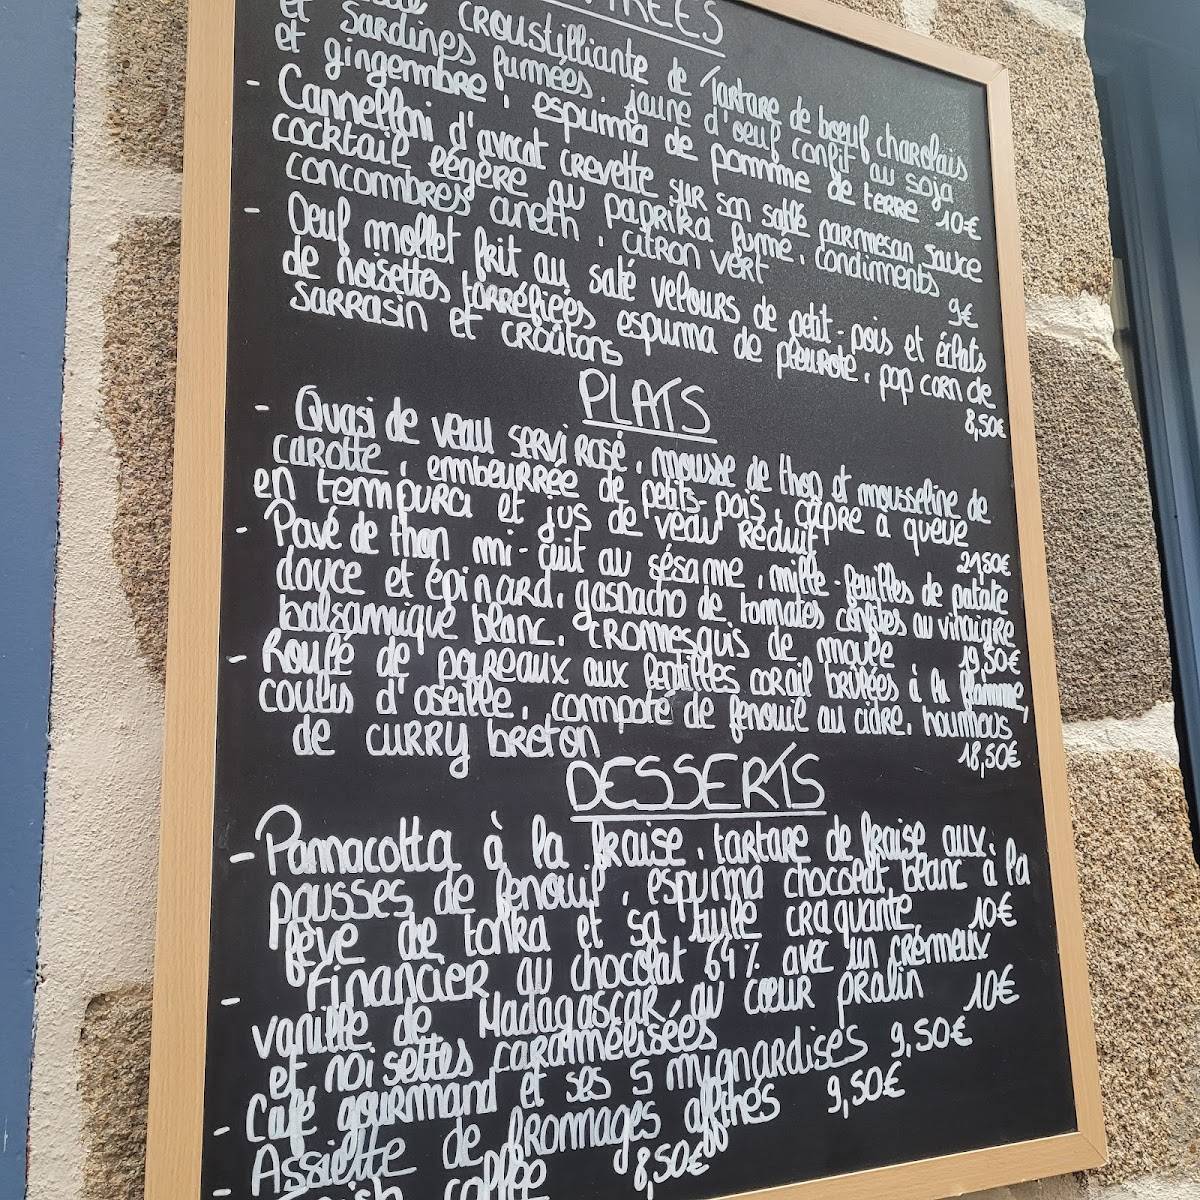 croustilliante de Tartare de bœuf charolais
et sardines fumées, jaune d'oeuf confit au soja
et gingembre, espuma de pomme de terre 10€
- Cannelloni d'avocat crevette sur son sablé parmesan sauce
cocktail légère au paprika fumé, condiments
concombres aneth, citron vert 9€
- Oeuf mollet frit au saté velours de petit-pois et éclats
de noisettes torréfiées espuma de pleurote, pop corn de
sarrasin et croûtons 8,50€
PLATS
- Quasi de veau servi rosé, mousse de thon et mousseline de
carotte, embeurrée de petits-pois, câpre a queue
en tempura et jus de veau réduit 21,50€
- Pavé de thon mi-cuit au sésame, mille-feuilles de patate
douce et épinard, gaspacho de tomates confites au vinaigre
balsamique blanc, cromesquis de moule 19,50€
- Roulé de poireaux aux lentilles corail brûlées à la flamme,
coulis d'oseille, compoté de fenouil au cidre, houmous
de curry breton 18,50€
DESSERTS
- Pannacotta à la fraise, tartare de fraise aux
pousses de fenouil, espuma chocolat blanc à la
fève de tonka et sa tuile craquante 10€
- Financier au chocolat 64% avec un crémeux
vanille de Madagascar, au cœur pralin 10€
et noisettes caramélisées
- Café gourmand et ses 5 mignardises 9,50€
- Assiette de fromages affinés 9,50€
- coffee 8,50€